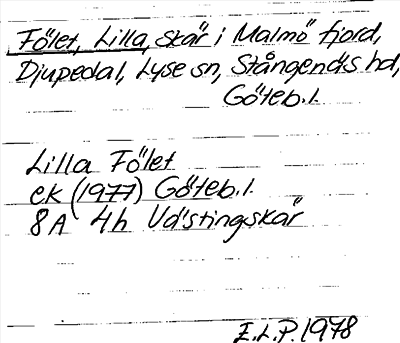 Fölet, Lilla, skär i Malmö fjord,
Djupedal, Lyse sn, Stångenäs hd,
Göteb.l.
Lilla Fölet
ek (1977) Göteb.l.
8A 4h Västingskär
E.L.P. 1978